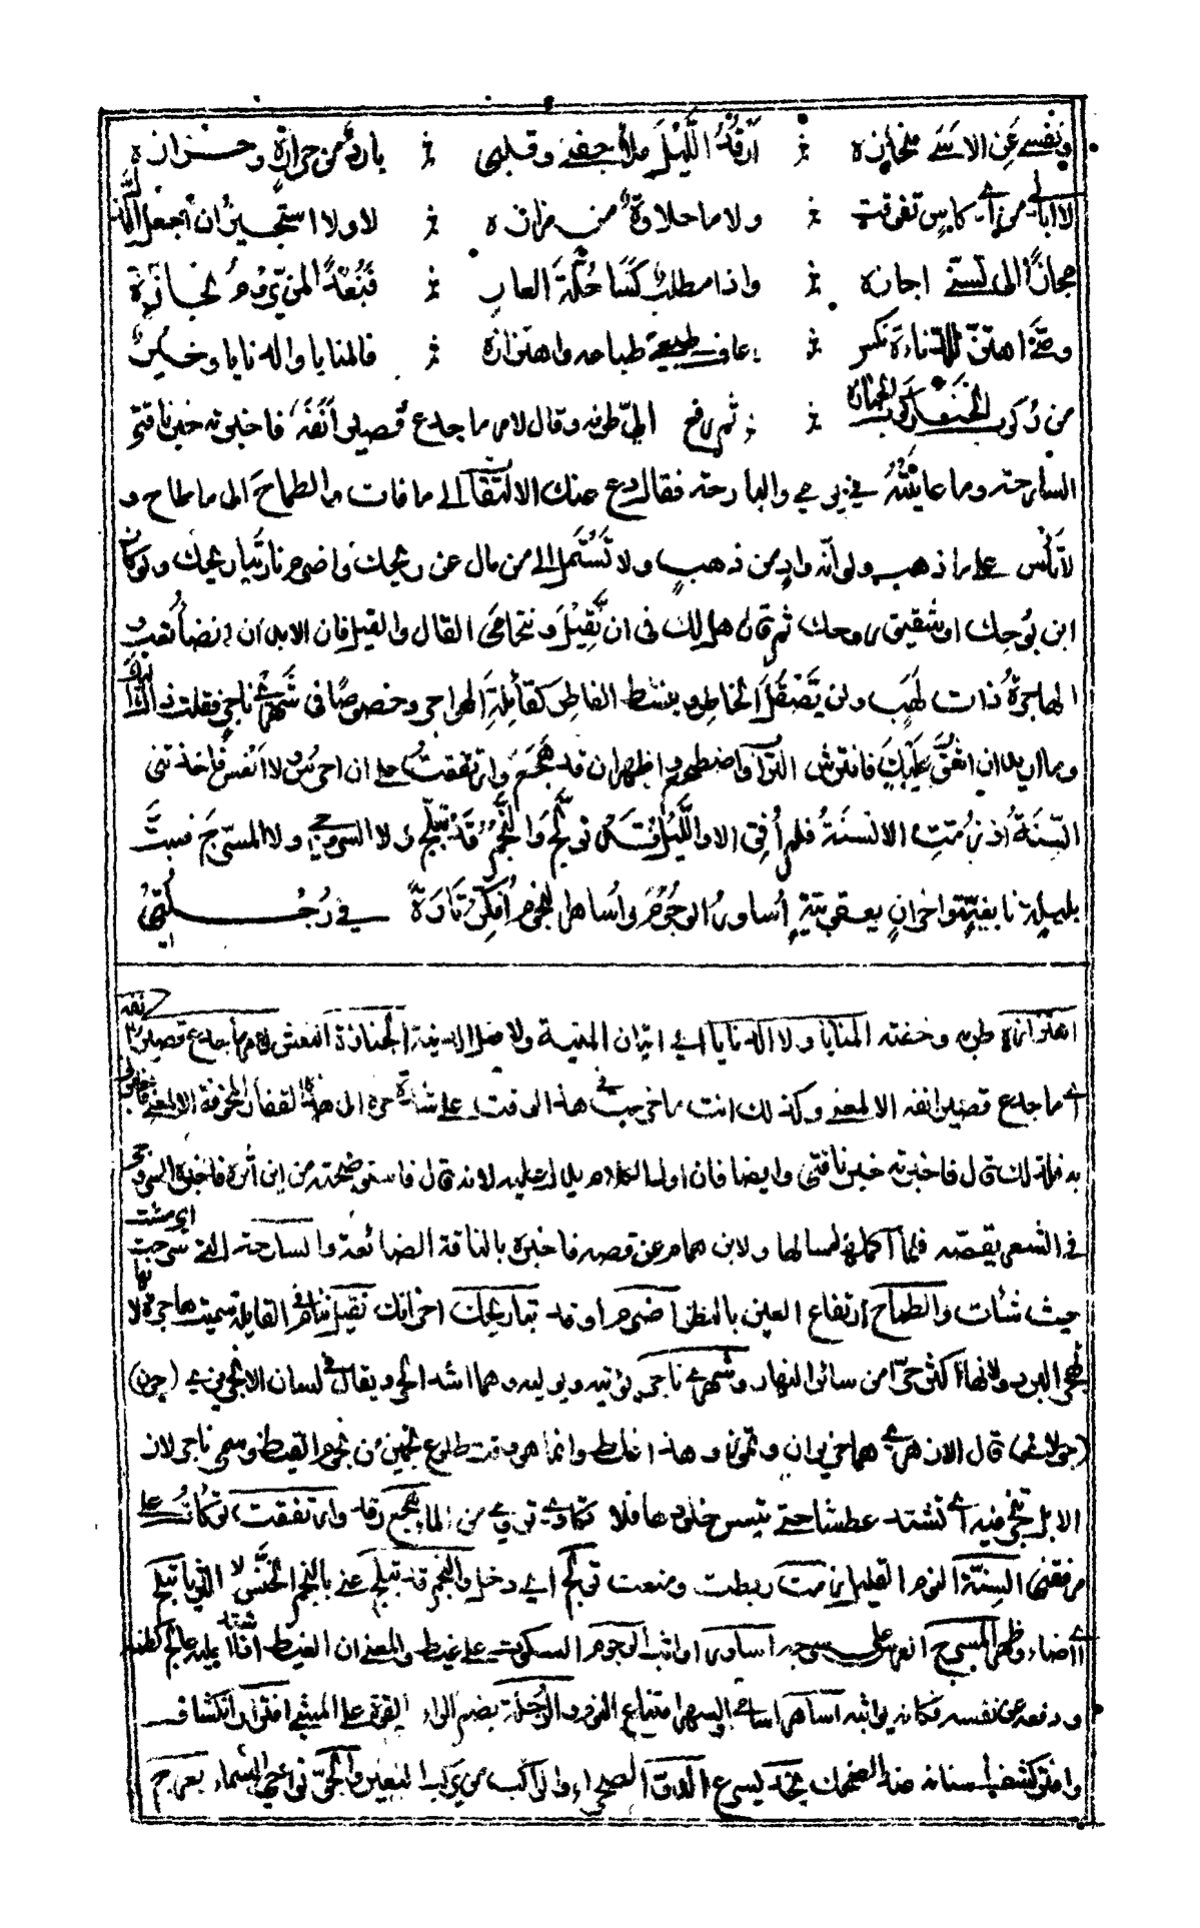 ونفسي عن الاسى منحازه ⁂ ارقد الليل ملأ جفني وقلبي ⁂ بارد من حرارة وحزازه
لا ابالي من اي كاس تفوقت ⁂ ولا ما حلاوة من مزازه ⁂ لا ولا استجيز ان اجعل الذل
مجازا الى تسني اجازه ⁂ واذا مطلب كسا حلة العار ⁂ فبعدا لمن يروم نجازه
ومتى اهتز للدناءة نكس ⁂ عاف طبعي طباعه واهتزازه ⁂ فالمنايا ولا الدنايا وخير
من ركوب الخنا ركوب الجنازه ⁂ ثم رفع الي طرفه وقال لامر ما جدع قصير انفه فاخبرته خبر ناقتي
السارحة وما عاينته في يومي والبارحة فقال دع عنك الالتفات الى ما فات والطماح الى ما طاح و
لا تأس على ما ذهب ولو انه واد من ذهب ولا تستمل من مال عن ريحك واضرم نار تباريحك ولو كان
ابن بوحك او شقيق روحك ثم قال هل لك في ان نقيل ونتحامى القال والقيل فان الابدان انضاء تعب و
الهاجرة ذات لهب ولن يصقل الخاطر وينشط الفاتر كقائلة الهواجر وخصوصا في شهري ناجر فقلت ذاك اليك
وما اريد ان اشق عليك فافترش الترب واضطجع واظهر ان قد هجع وارتفقت على ان احرس ولا انعس فاخذتني
السنة اذ زمت الالسنة فلم افق الا والليل قد تولج والنجم قد تبلج ولا السروجي ولا المسرج فبت
بليلة نابغية واحزان يعقوبية اساور الوجوم واساهر النجوم افكر تارة في رجلتي
اهتزازه طربه وخفته المنايا ولا الدنايا اي اتيان المنية ولا فعل الدنية الجنازة النعش لامر ما جدع قصير انفه
اي ما جدع قصير انفه الا لمعنى وكذلك انت ما خرجت في هذا الوقت على شدة حره الى هذه القفار المخوفة الا لمعنى
به فلذلك قال فاخبرته خبر ناقتي وايضا فان اول الكلام يدل عليه لانه قال فاستوضحته من اين اثره فاخبره السروجي
في الشعر بقصته فلما اكملها سال ابن همام عن قصته فاخبره بالناقة الضائعة والسارحة التي سرحت
حيث شاءت والطماح ارتفاع العين بالنظر اضرم اوقد تباريحك احزانك نقيل ننام في القايلة سميت هاجرة لا
البرد ولانها اكثر حرا من سائر النهار وشهري ناجر يونيه ويوليه وهما اشد الحر ويقال في لسان الانجريزي (جون)
(جولائي) قال الازهري هما حزيران وتموز وهذا غلط وانما هو وقت طلوع نجمين من نجوم القيظ وسمي ناجر لان
الابل تنجر فيه اي تشتد عطشا حتى تيبس جلودها فلا تكاد تروى من الماء هجع رقد وارتفقت توكأت على
مرفقي السنة النوم القليل زمت ربطت ومنعت تولج اي دخل والنجم قد تبلج عني بالنجم الجنس لا الثريا تبلج
اي اضاء وظهر المسرج الفرس على سرجه اساور اواثب الوجوم السكوت على غيظ والمعنى ان الغيظ
ودفعه عن نفسه فكانه يواثبه اساهر السهر امتناع النوم والرجلة بضم الراء القوة على المشي افترار انكشاف
وافتر كشف اسنانه ضد الضحك يخد يسرع الدو الصحراء والراكب من يركب البعير والجو نواحي السماء يعرج